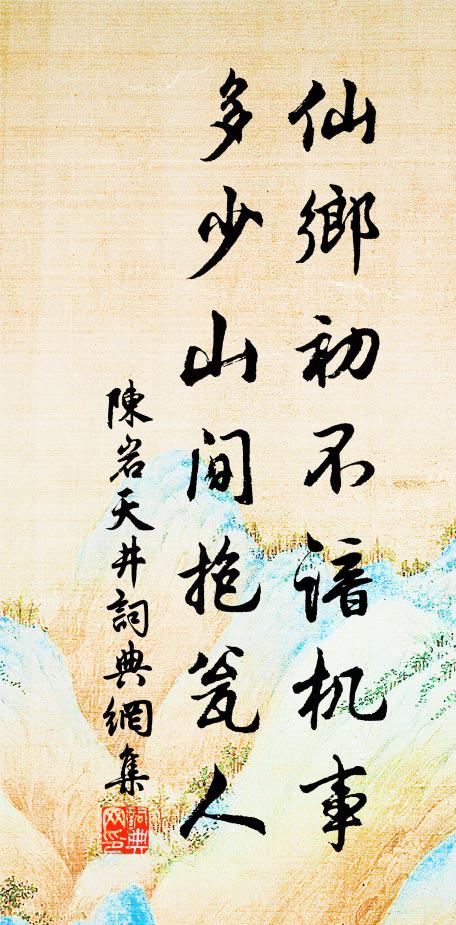 仙鄉初不諳机事
多少山间抱瓮人
陳岩天井詞典網集
詞典网印